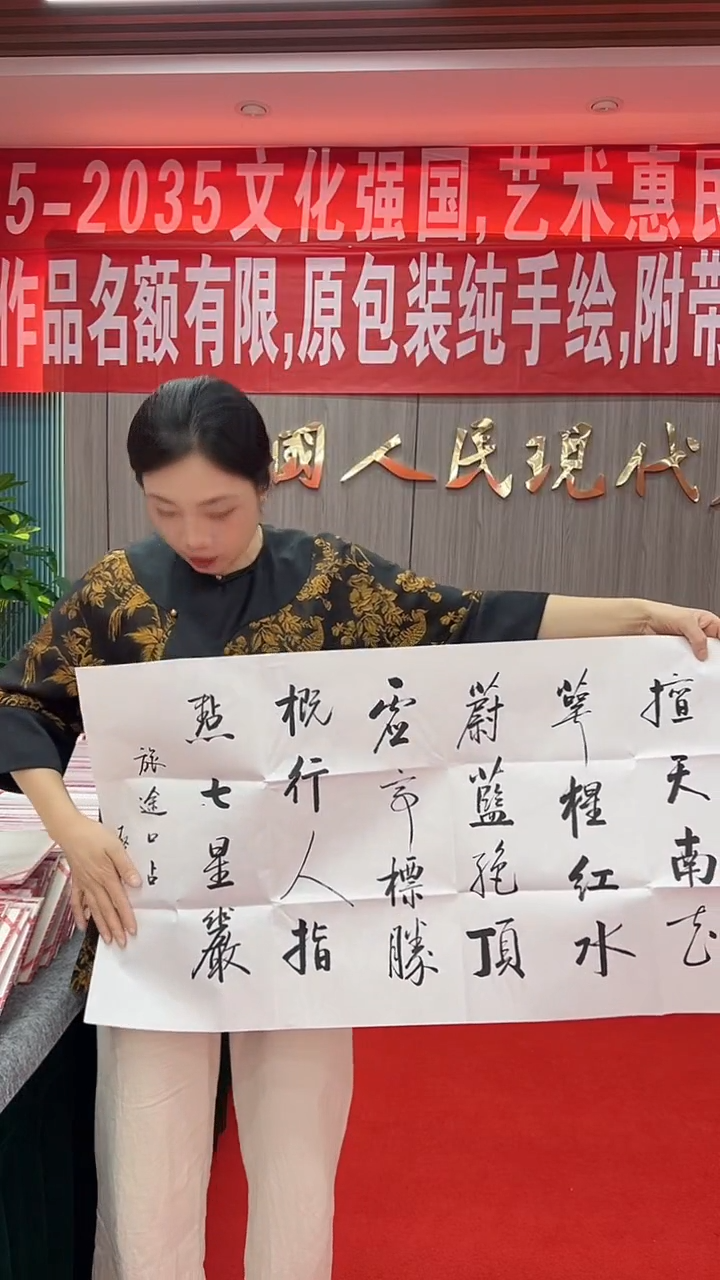 5-2035文化强国,艺术惠民
作品名额有限,原包装纯手绘,附带
國人民現代
擅天南
紅水
蔚藍絕頂
虛亭標勝
概行人指
點七星巖
旅途口占